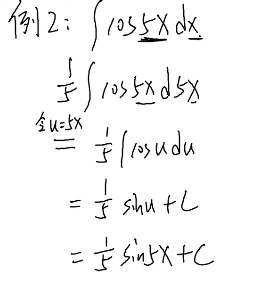 例2: ∫cos5xdx
1/5 ∫cos5xd5x
令u=5x
= 1/5 ∫cosudu
= 1/5 sinu+C
= 1/5 sin5x+C